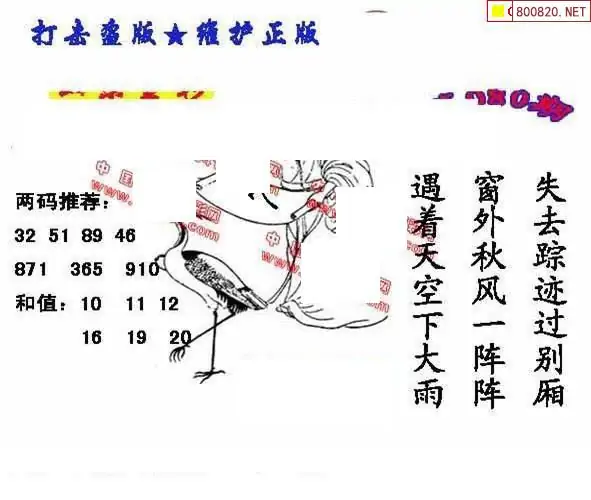 800820.NET
打击盗版★维护正版
两码推荐：
32 51 89 46
871 365 910
和值：10 11 12
16 19 20
失去踪迹过别厢
窗外秋风一阵阵
遇着天空下大雨